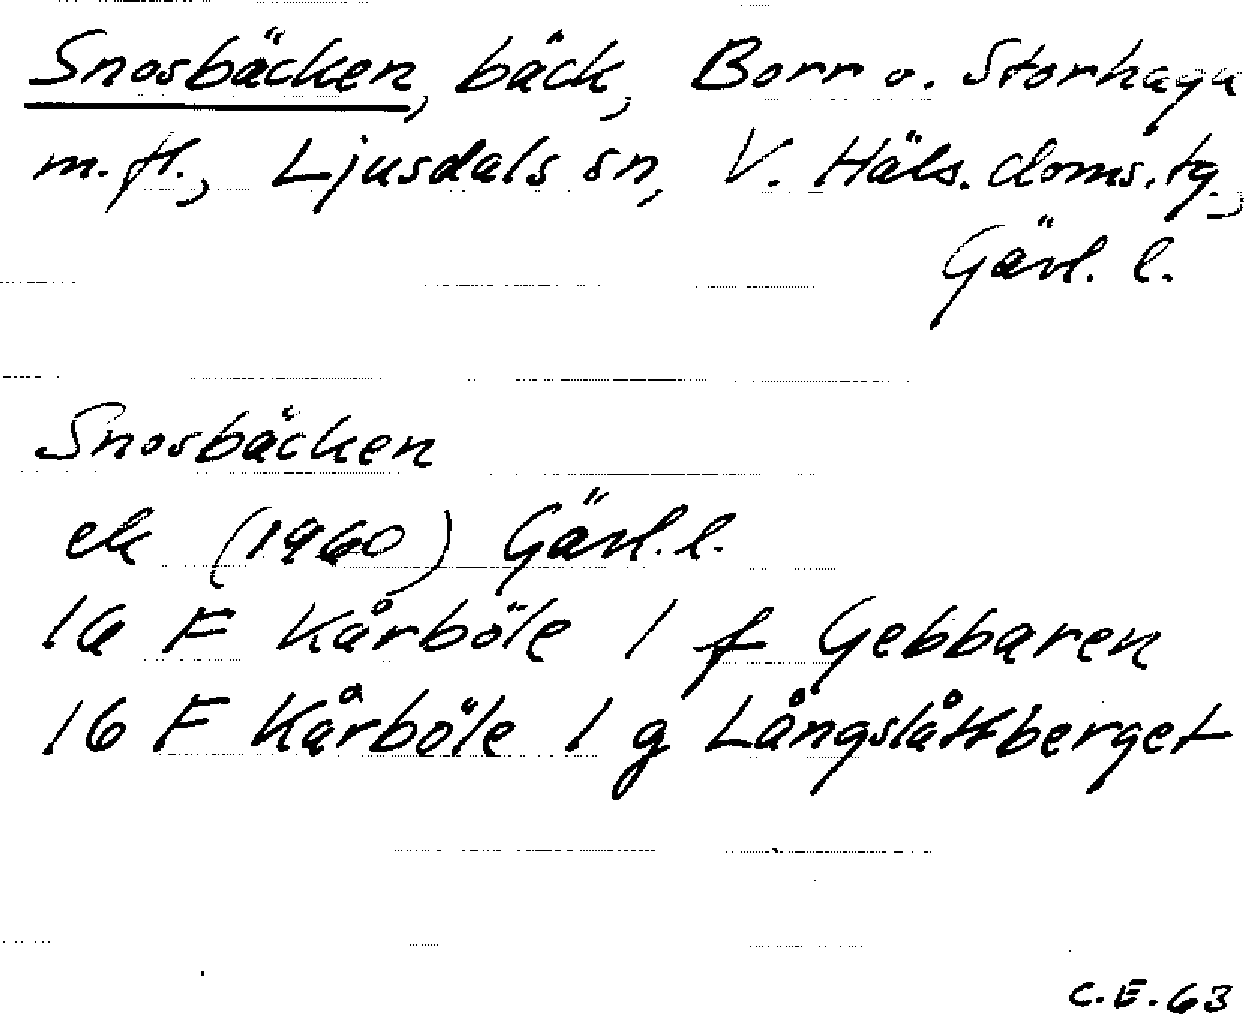 Snosbäcken, bäck, Borr o. Storhaga
m.fl., Ljusdals sn, V. Häls. doms.tg.,
Gävl. l.
Snosbäcken
ek (1960) Gävl. l.
16 F Kårböle 1 f Gebbaren
16 F Kårböle 1 g Långslåttberget
C.E. 63